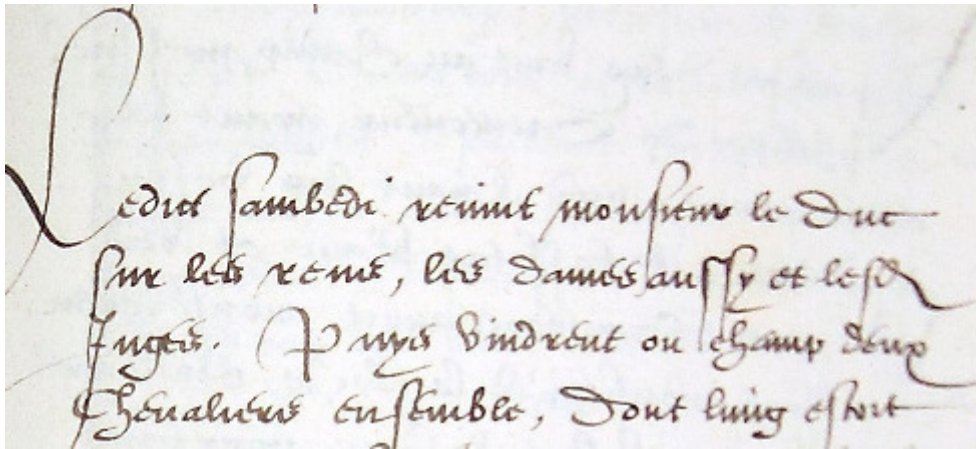 Ledict sambedi revint monsieur le duc
sur les rens, les dames aussy et lesd
Juges. Puys vindrent ou champ deux
Chevaliers ensemble, dont lung estoit